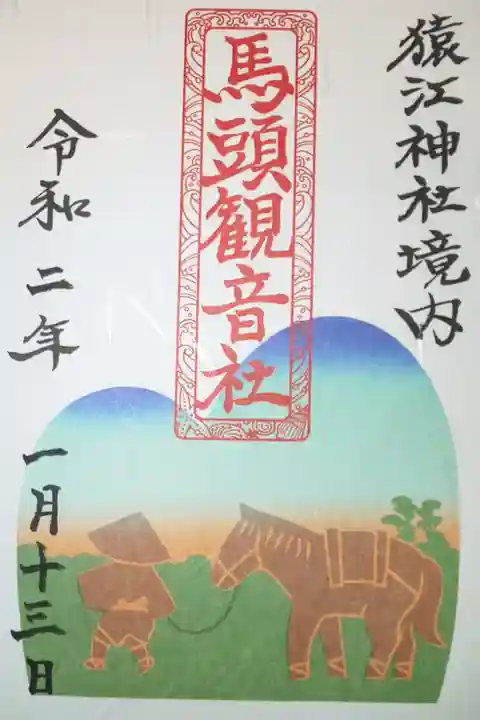 猿江神社境内
馬頭観音社
令和二年一月十三日